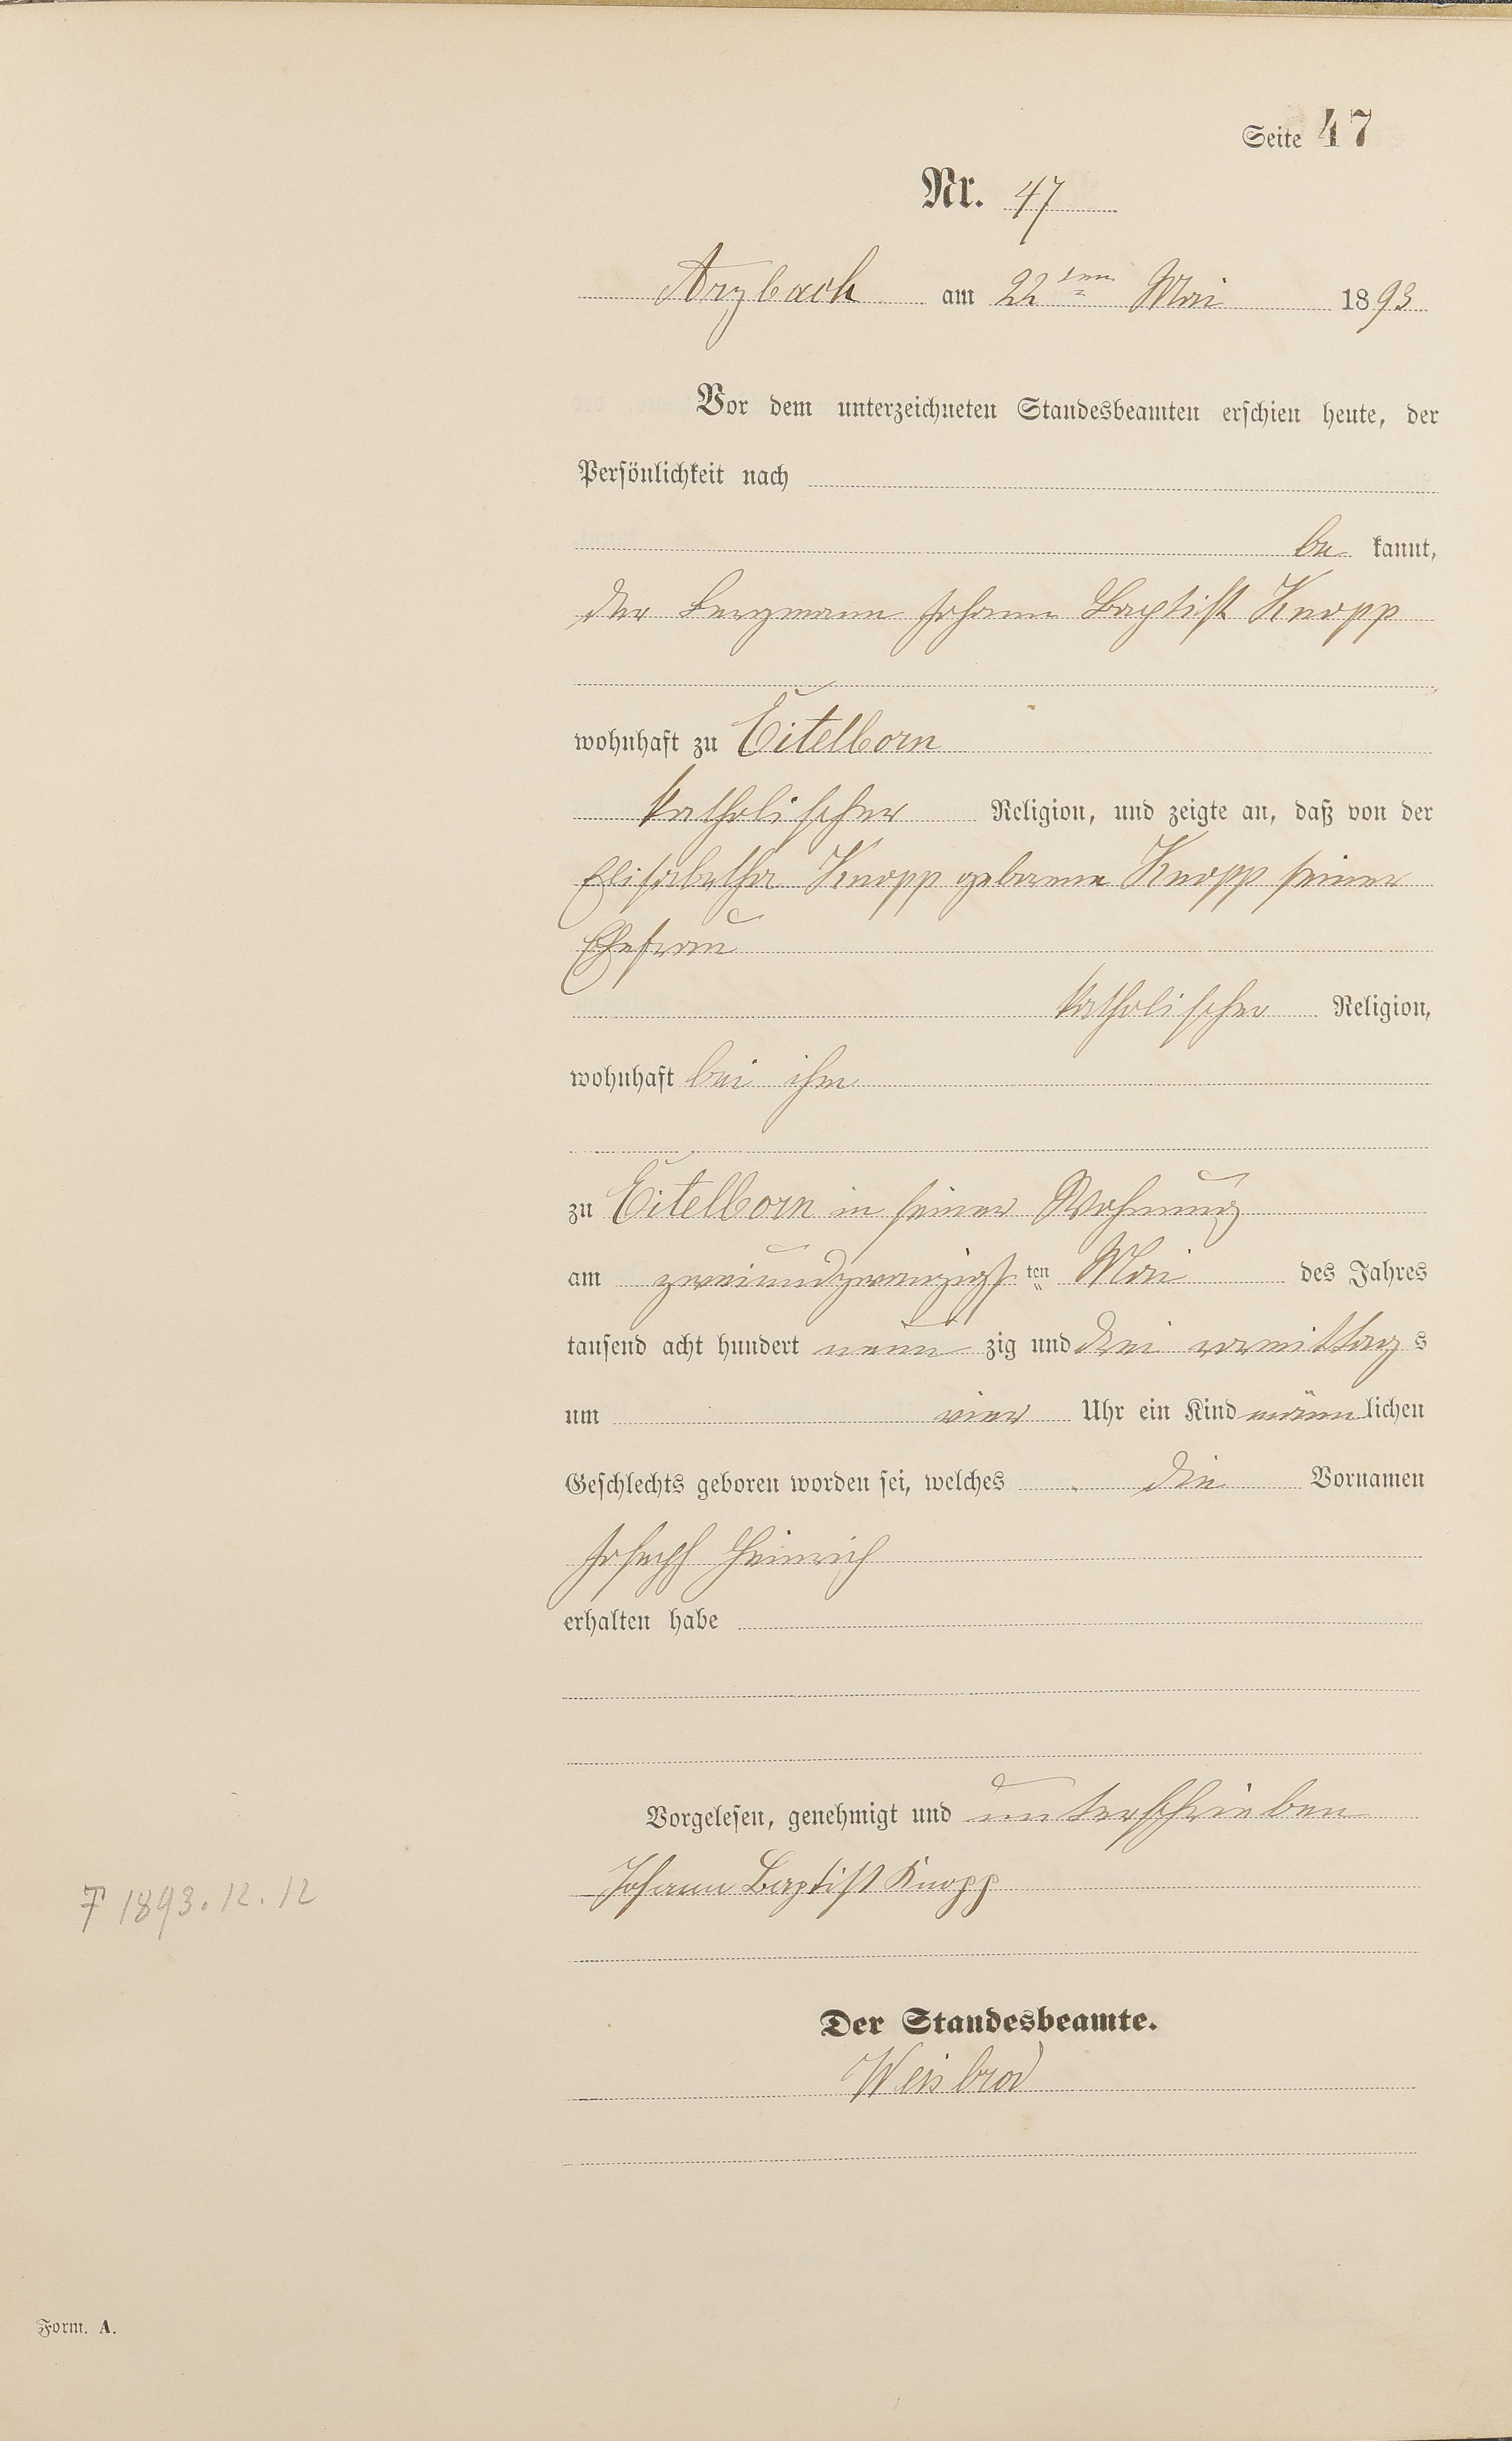 Seite 47
Nr. 47
Arzbach am 22ten Mai 1893
Vor dem unterzeichneten Standesbeamten erschien heute, der
Persönlichkeit nach
be kannt,
der Bergmann Johann Baptist Knopp
wohnhaft zu Eitelborn
katholischer Religion, und zeigte an, daß von der
Elisabetha Knopp geborene Knopp seiner
Ehefrau
katholischer Religion,
wohnhaft bei ihm
zu Eitelborn in seiner Wohnung
am zweiundzwanzigs ten Mai des Jahres
tausend acht hundert neun zig und drei vormittag s
um vier Uhr ein Kind männ lichen
Geschlechts geboren worden sei, welches die Vornamen
Joseph Heinrich
erhalten habe
Vorgelesen, genehmigt und unterschrieben
Johann Baptist Knopp
† 1893.12.12
Der Standesbeamte.
Weisbrod
Form. A.